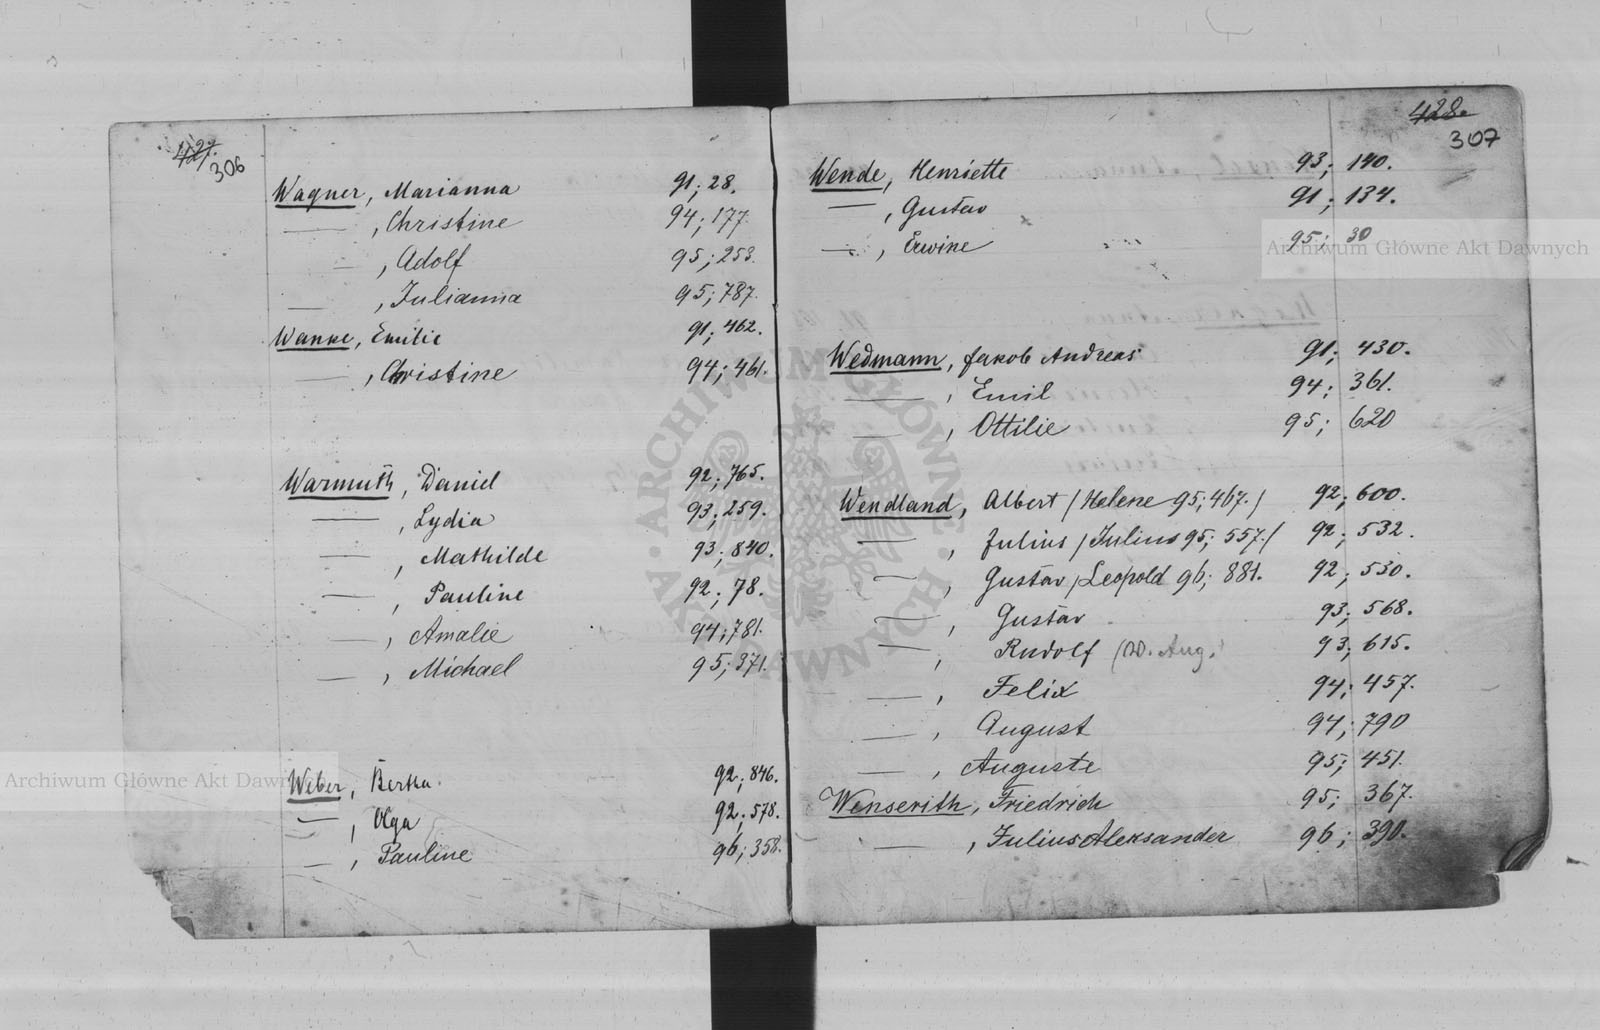 427.
306
Wagner, Marianna 91; 28.
— , Christine 94; 177.
— , Adolf 95; 253.
— , Julianna 95; 787.
Wanke, Emilie 91; 462.
— , Christine 94; 461.
Warmuth, Daniel 92; 765.
— , Lydia 93; 259.
— , Mathilde 93; 840.
— , Pauline 92; 78.
— , Amalie 94; 781.
— , Michael 95; 371.
Weber, Bertha. 92; 846.
— , Olga 92; 578.
— , Pauline 96; 358.
428.
307
Wende, Henriette 93; 140.
— , Gustav 91; 134.
— , Erwine 95; 30
Wedmann, Jakob Andreas 91; 430.
— , Emil 94; 361.
— , Ottilie 95; 620
Wendland, Albert / Helene 95; 467. / 92; 600.
— , Julius / Julius 95; 557. / 92; 532.
— , Gustav / Leopold 96; 881. 92; 530.
— , Gustav 93; 568.
— , Rudolf (W. Aug. 93; 615.
— , Felix 94; 457.
— , August 94; 790
— , Auguste 95; 451.
Wenserith, Friedrich 95; 367.
— , Julius Aleksander 96; 390.
Archiwum Główne Akt Dawnych
Archiwum Główne Akt Dawnych
ARCHIWUM GŁÓWNE AKT DAWNYCH